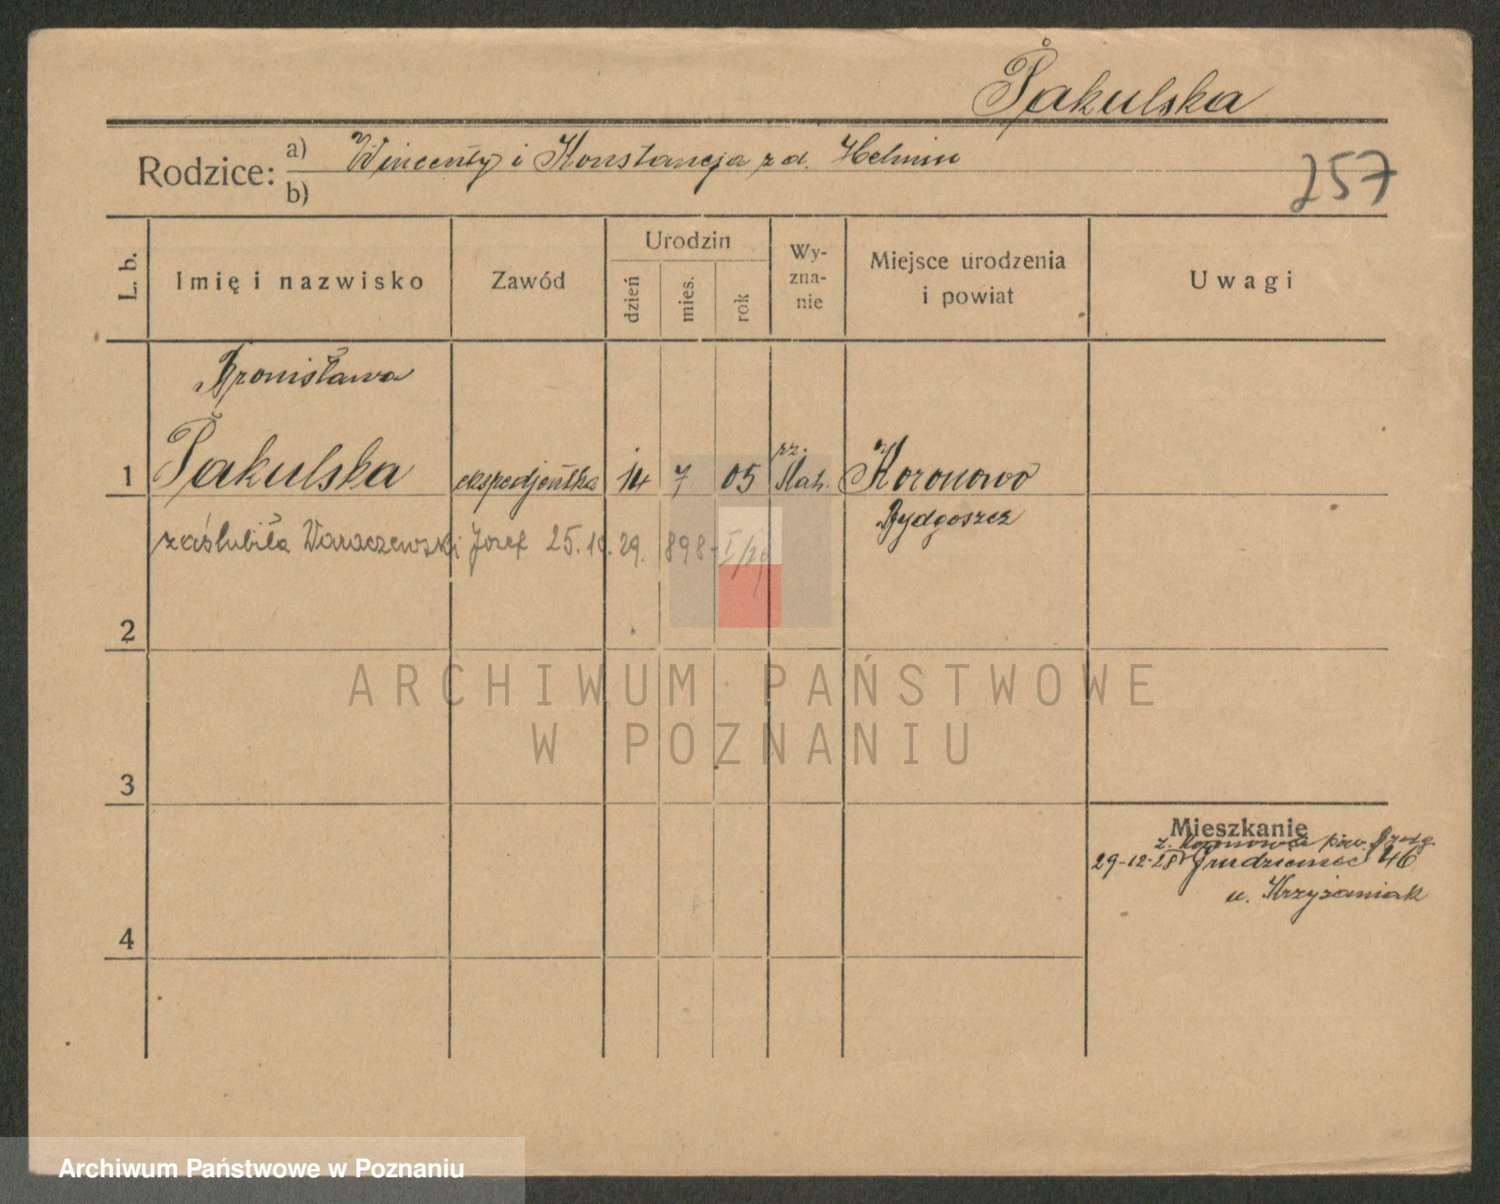 Pakulska
Rodzice: a) Wincenty i Konstancja z d. Helmin
b)
257
L. b.
Imię i nazwisko
Zawód
Urodzin
dzień
mies.
rok
Wy-
zna-
nie
Miejsce urodzenia
i powiat
Uwagi
Bronisława
1 Pakulska ekspedjentka 14 7 05 rz. Kat. Koronowo
Bydgoszcz
zaślubiła Waraczewski Józef 25.10.29. 898
2
3
4
Mieszkanie
z. Koronowa pow. Bydg.
29-12-28 Grudzieniec 46
u. Krzyżaniak
ARCHIWUM PAŃSTWOWE
W POZNANIU
Archiwum Państwowe w Poznaniu